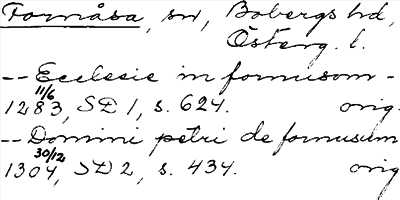 Fornåsa, sn, Bobergs hd,
Österg. l.
-- Ecclesie in fornusom -
11/6
1283, SD 1, s. 624. orig.
-- Domini petri de fornusum
30/12
1304, SD 2, s. 434. orig